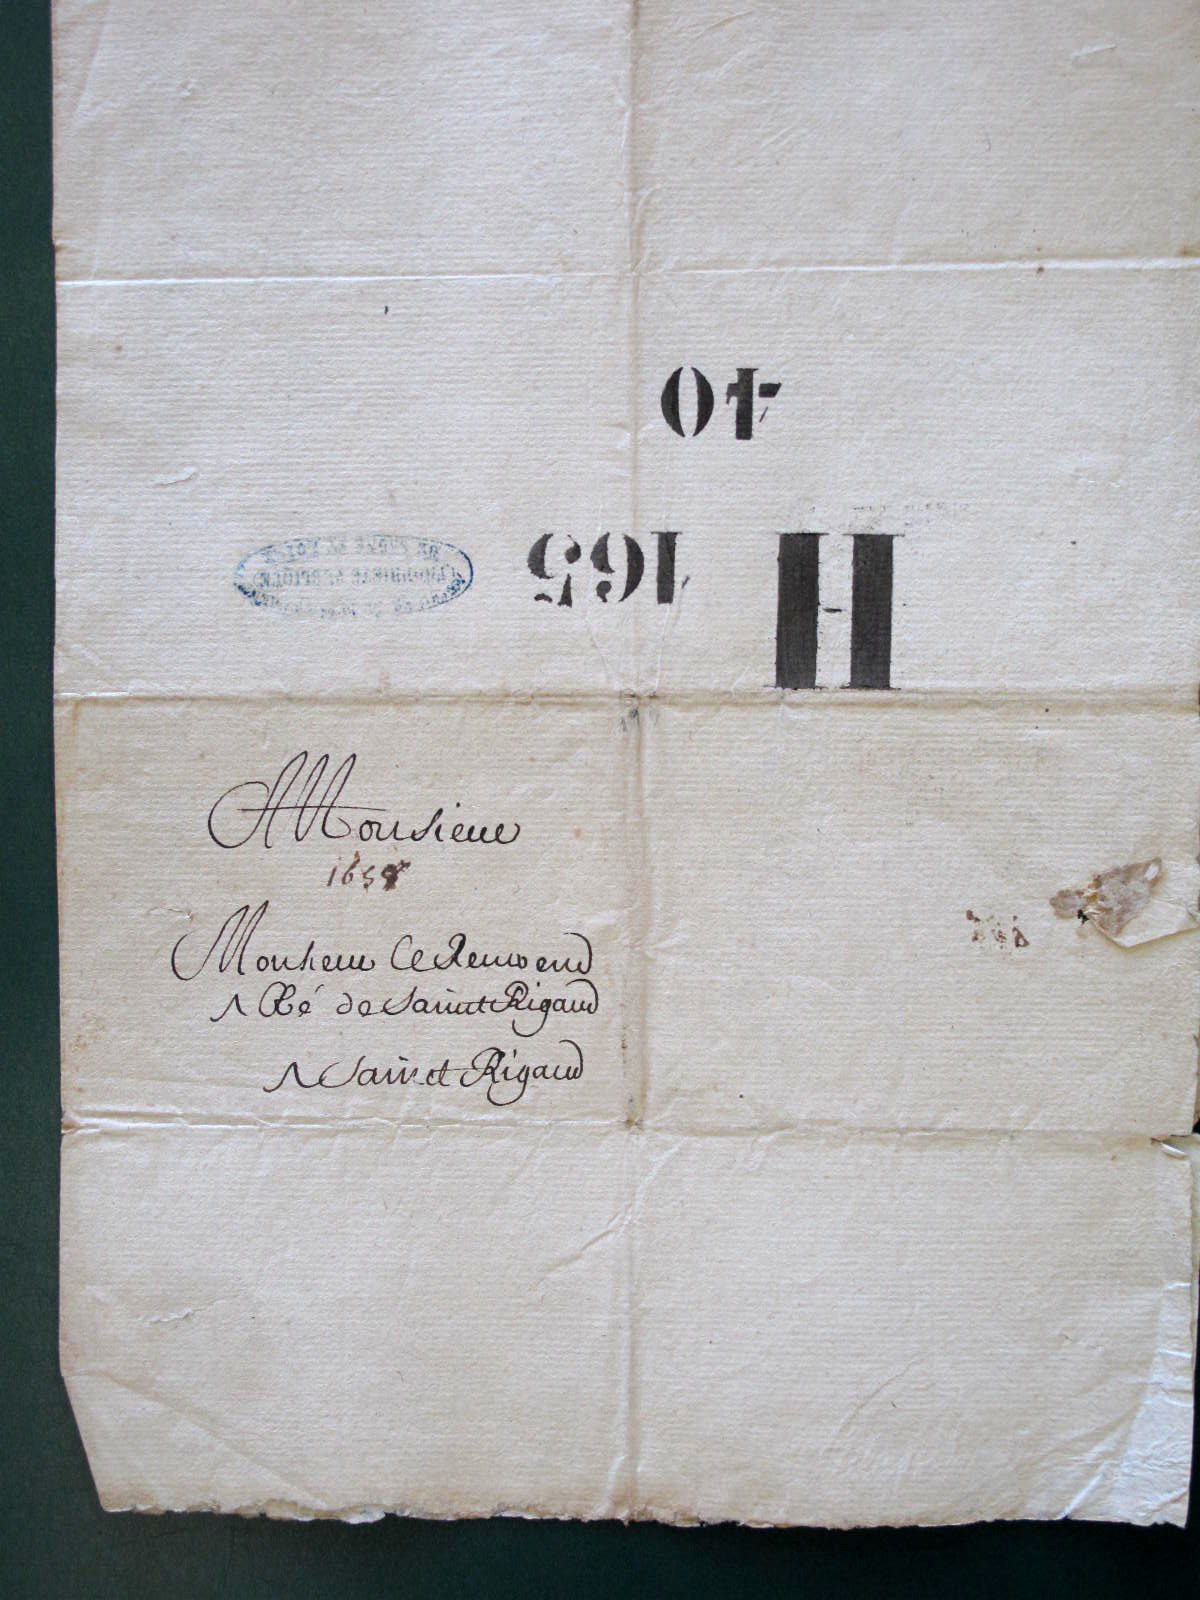 40
H 165
Monsieur
Monsieur Le Reuerend
Abé de Sainct Rigaud
A Sainct Rigaud